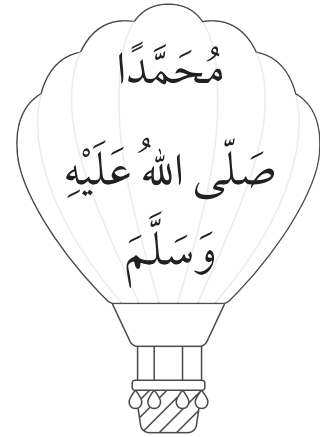 مُحَمَّدًا
صَلّى اللهُ عَلَيْهِ
وَسَلَّمَ